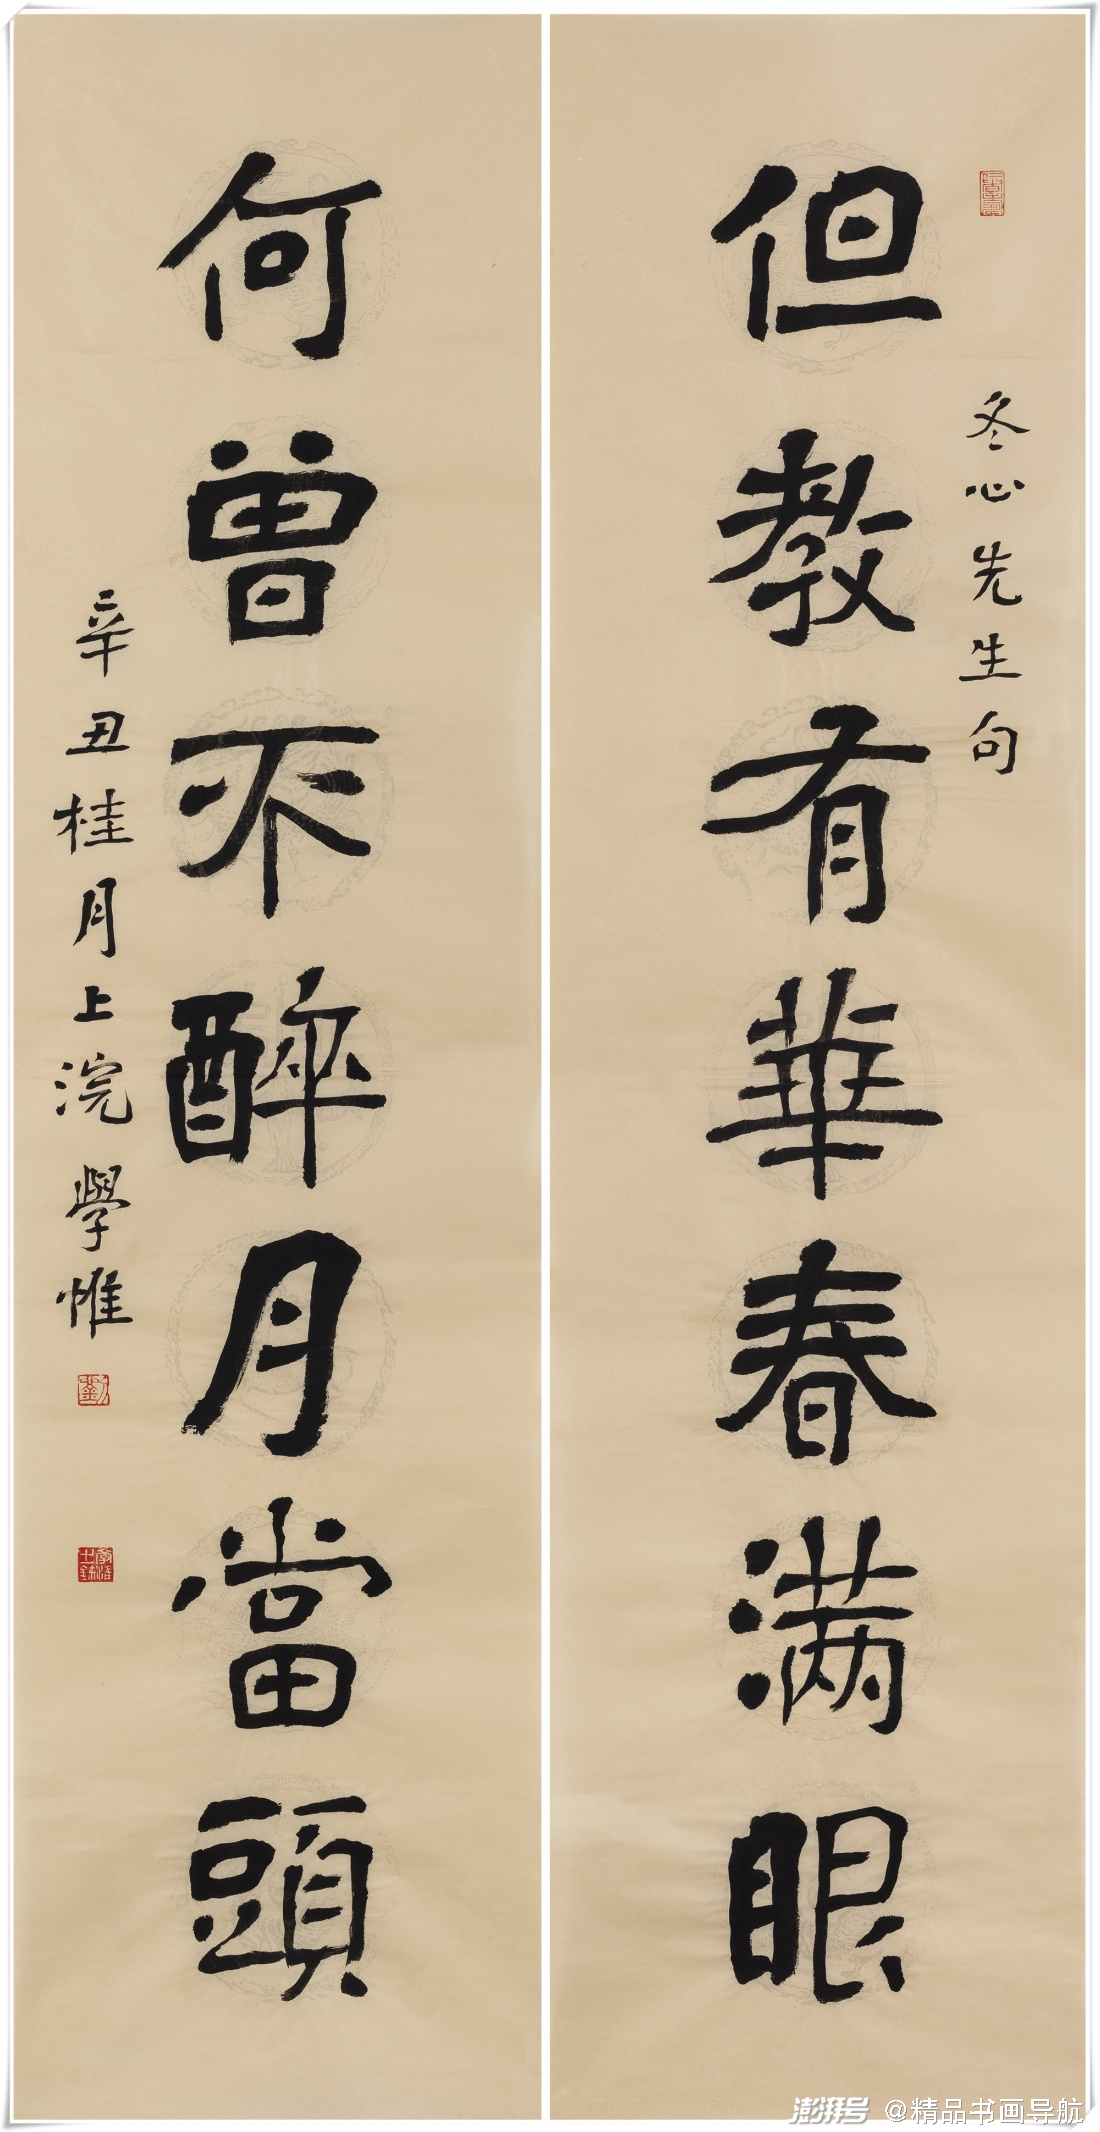 冬心先生句
但教有華春满眼
何曾不醉月當頭
辛丑桂月上浣學惟
澎湃号 @精品书画导航